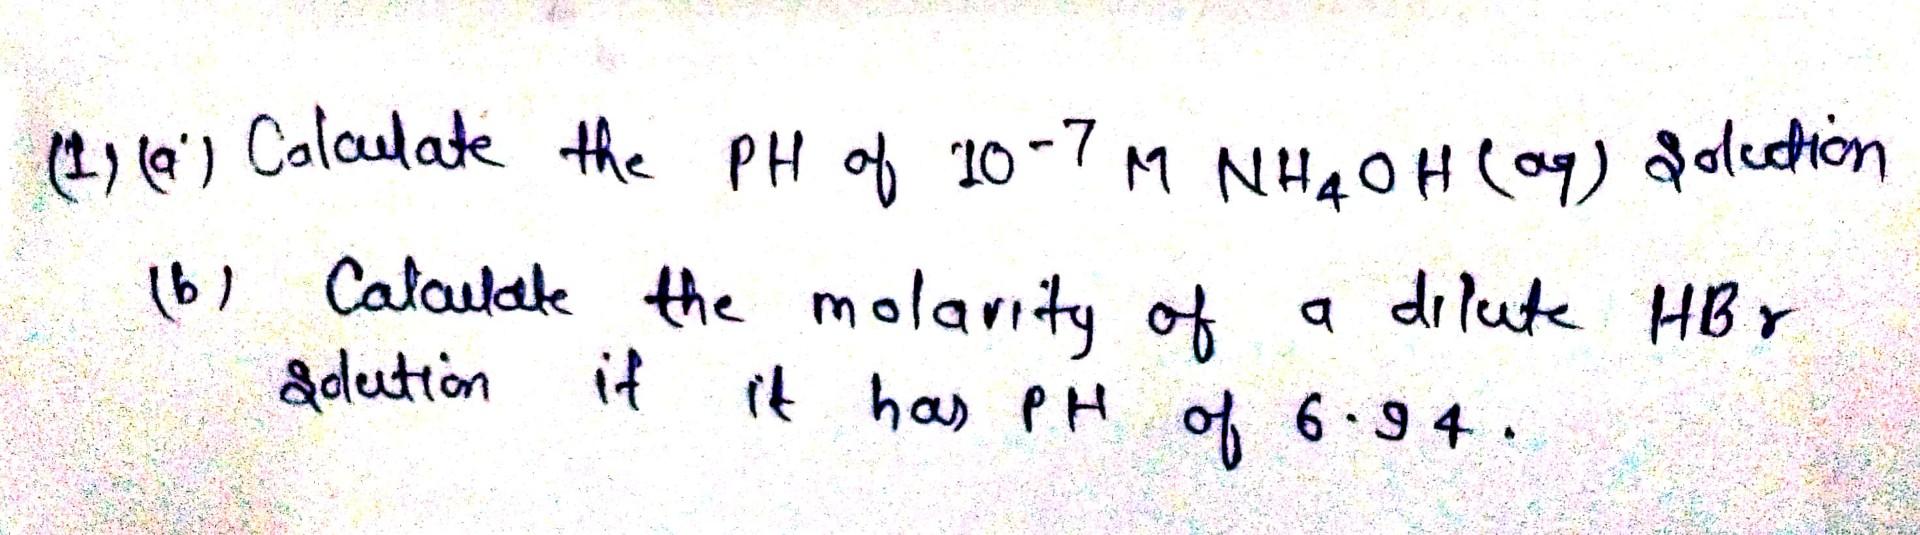 (1) (a) Calculate the PH of 10-7 M NH4OH (aq) Solution
(b) Calculate the molarity of a dilute HBr
Solution if it has PH of 6.94.